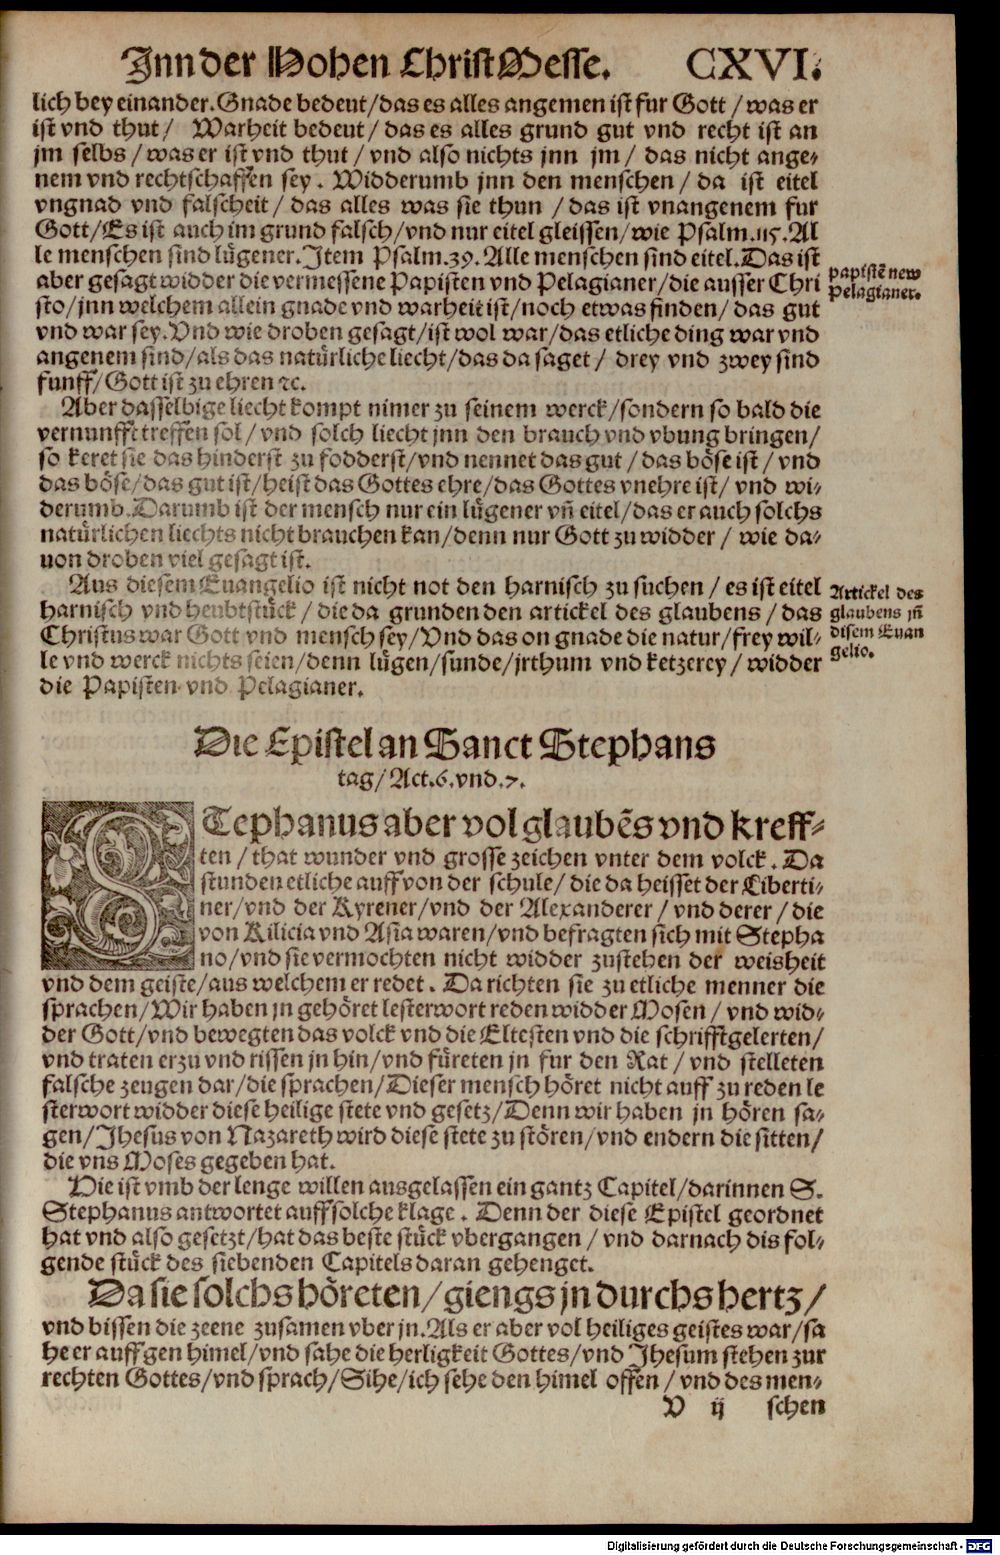 Inn der Hohen ChristMesse. CXVI.
lich bey einander. Gnade bedeut/das es alles angemen ist fur Gott / was er
ist vnd thut/ Warheit bedeut/ das es alles grund gut vnd recht ist an
jm selbs / was er ist vnd thut / vnd also nichts jnn jm / das nicht ange-
nem vnd rechtschaffen sey. Widderumb jnn den menschen / da ist eitel
vngnad vnd falscheit / das alles was sie thun / das ist vnangenem fur
Gott/Es ist auch im grund falsch/vnd nur eitel gleissen/wie Psalm.115. Al
le menschen sind lügener. Item Psalm.39. Alle menschen sind eitel. Das ist
aber gesagt widder die vermessene Papisten vnd Pelagianer/die ausser Chri
sto/jnn welchem allein gnade vnd warheit ist/noch etwas finden/ das gut
vnd war sey. Vnd wie droben gesagt/ist wol war/das etliche ding war vnd
angenem sind/als das natürliche liecht/das da saget/ drey vnd zwey sind
funff/Gott ist zu ehren ꝛc.
papistē new
Pelagianer.
Aber dasselbige liecht kompt nimer zu seinem werck/sondern so bald die
vernunfft treffen sol/ vnd solch liecht jnn den brauch vnd vbung bringen/
so keret sie das hinderst zu fodderst/vnd nennet das gut / das böse ist / vnd
das böse/das gut ist/heist das Gottes ehre/das Gottes vnehre ist/ vnd wi-
derumb. Darumb ist der mensch nur ein lügener vñ eitel/das er auch solchs
natürlichen liechts nicht brauchen kan/denn nur Gott zu widder / wie da-
uon droben viel gesagt ist.
Aus diesem Euangelio ist nicht not den harnisch zu suchen / es ist eitel
harnisch vnd heubtstück / die da grunden den artickel des glaubens / das
Christus war Gott vnd mensch sey/Vnd das on gnade die natur/frey wil-
le vnd werck nichts seien/denn lügen/sunde/jrthum vnd ketzerey/ widder
die Papisten vnd Pelagianer.
Artickel des
glaubens jñ
disem Euan
gelio.
Die Epistel an Sanct Stephans
tag/ Act.6.vnd.7.
STephanus aber vol glaubēs vnd kreff-
ten / that wunder vnd grosse zeichen vnter dem volck. Da
stunden etliche auff von der schule/ die da heisset der Liberti-
ner/vnd der Kyrener/vnd der Alexanderer / vnd derer / die
von Kilicia vnd Asia waren/vnd befragten sich mit Stepha
no/vnd sie vermochten nicht widder zustehen der weisheit
vnd dem geiste/aus welchem er redet. Da richten sie zu etliche menner die
sprachen/Wir haben jn gehöret lesterwort reden widder Mosen / vnd wid-
der Gott/vnd bewegten das volck vnd die Eltesten vnd die schrifftgelerten/
vnd traten erzu vnd rissen jn hin/vnd füreten jn fur den Rat / vnd stelleten
falsche zeugen dar/die sprachen/Dieser mensch höret nicht auff zu reden le
sterwort widder diese heilige stete vnd gesetz/Denn wir haben jn hören sa-
gen/Jhesus von Nazareth wird diese stete zu stören/vnd endern die sitten/
die vns Moses gegeben hat.
Hie ist vmb der lenge willen ausgelassen ein gantz Capitel/darinnen S.
Stephanus antwortet auff solche klage. Denn der diese Epistel geordnet
hat vnd also gesetzt/hat das beste stück vbergangen / vnd darnach dis fol-
gende stück des siebenden Capitels daran gehenget.
Da sie solchs höreten/giengs jn durchs hertz/
vnd bissen die zeene zusamen vber jn. Als er aber vol heiliges geistes war/sa
he er auff gen himel/vnd sahe die herligkeit Gottes/vnd Jhesum stehen zur
rechten Gottes/vnd sprach/Sihe/ich sehe den himel offen / vnd des men-
V ij schen
Digitalisierung gefördert durch die Deutsche Forschungsgemeinschaft - DFG